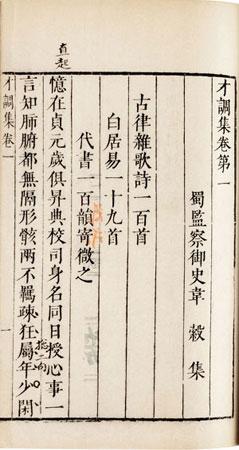 才調集卷第一
蜀監察御史韋 縠 集
古律雜歌詩一百首
白居易一十九首
代書一百韻寄微之
直起
憶在貞元歲俱昇典校司身名同日授心事一
言知肺腑都無隔形骸兩不羈疎狂屬年少閑
才調集卷一